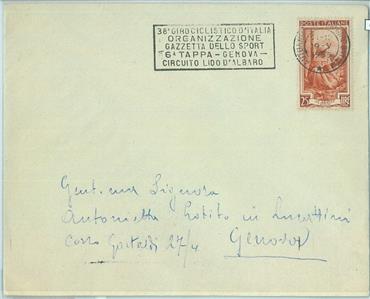 38º GIRO CICLISTICO D'ITALIA
ORGANIZZAZIONE
GAZZETTA DELLO SPORT
6ª TAPPA - GENOVA -
CIRCUITO LIDO D'ALBARO
POSTE ITALIANE
25 LIRE
Gent.ma Signora
Antonietta in
Corso Gastaldi 27/4
Genova